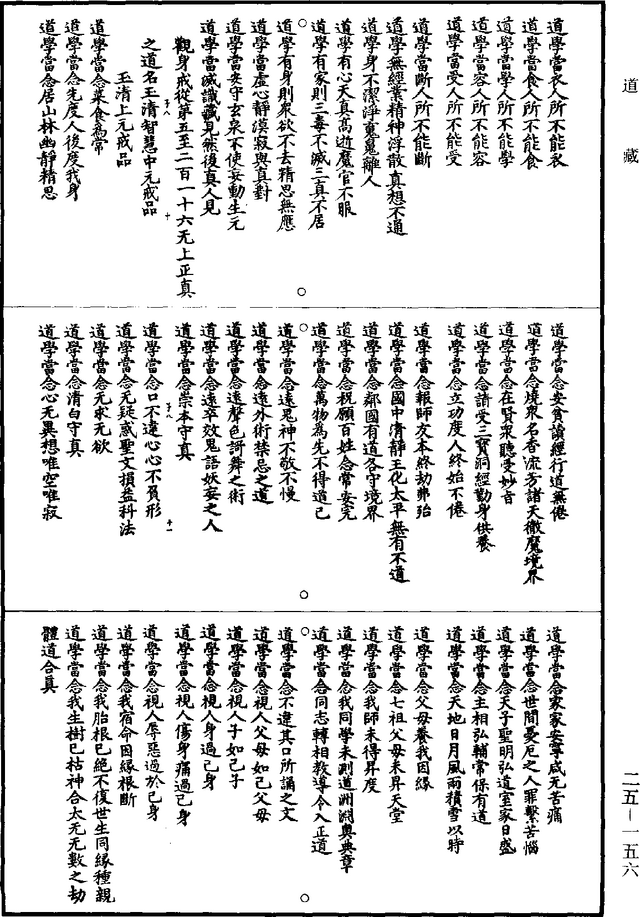 道藏
道學當衣人所不能衣
道學當食人所不能食
道學當學人所不能學
道學當容人所不能容
道學當受人所不能受
道學當斷人所不能斷
道學無經業精神浮散真想不通
道學身不潔淨真鬼離人
道學有心天真高逝魔官不服
道學有家則三毒不滅三真不居
道學有身則眾欲不去精思無應
道學當虛心靜漠寂與真對
道學當安守玄泉不使妄動生元
道學當滅識藏見然後真人見
觀身戒從第五至二百一十六无上正真
之道名玉清智慧中元戒品
玉清上元戒品
道學當念菜食為常
道學當念先度人後度我身
道學當念居山林幽靜精思
道學當念安貧讀經行道無倦
道學當念燒眾名香流芳諸天徹魔境界
道學當念在賢眾聽受妙音
道學當念請受三寶洞經勤身供養
道學當念立功度人終始不倦
道學當念報師友本終劫弗殆
道學當念國中清靜王化太平無有不道
道學當念鄰國有道各守境界
道學當念祝願百姓念常安完
道學當念萬物為先不得道己
道學當念遠鬼神不敬不慢
道學當念遠外術禁忌之道
道學當念遠聲色謌舞之術
道學當念遠卒效鬼語妖妄之人
道學當念崇本守真
道學當念口不違心心不負形
道學當念无疑惑聖文損益科法
道學當念无求无欲
道學當念清白守真
道學當念心无異想唯空唯寂
道學當念家家安寧咸无苦痛
道學當念世間憂厄之人罪繫苦惱
道學當念天子聖明弘道室家日盛
道學當念主相弘輔常保有道
道學當念天地日月風雨積雪以時
道學當念父母養我因緣
道學當念七祖父母未昇天堂
道學當念我師未得昇度
道學當念我同學未測道洲淵奧典章
道學當念同志轉相教導令入正道
道學當念不違其口所誦之文
道學當念視人父母如己父母
道學當念視人子如己子
道學當念視人身過己身
道學當念視人傷身痛過己身
道學當念視人辱惡過於己身
道學當念我宿命因緣根斷
道學當念我胎根已絕不復世生同緣種親
道學當念我生樹已枯神合太无无數之劫
體道合真
二五—一五六